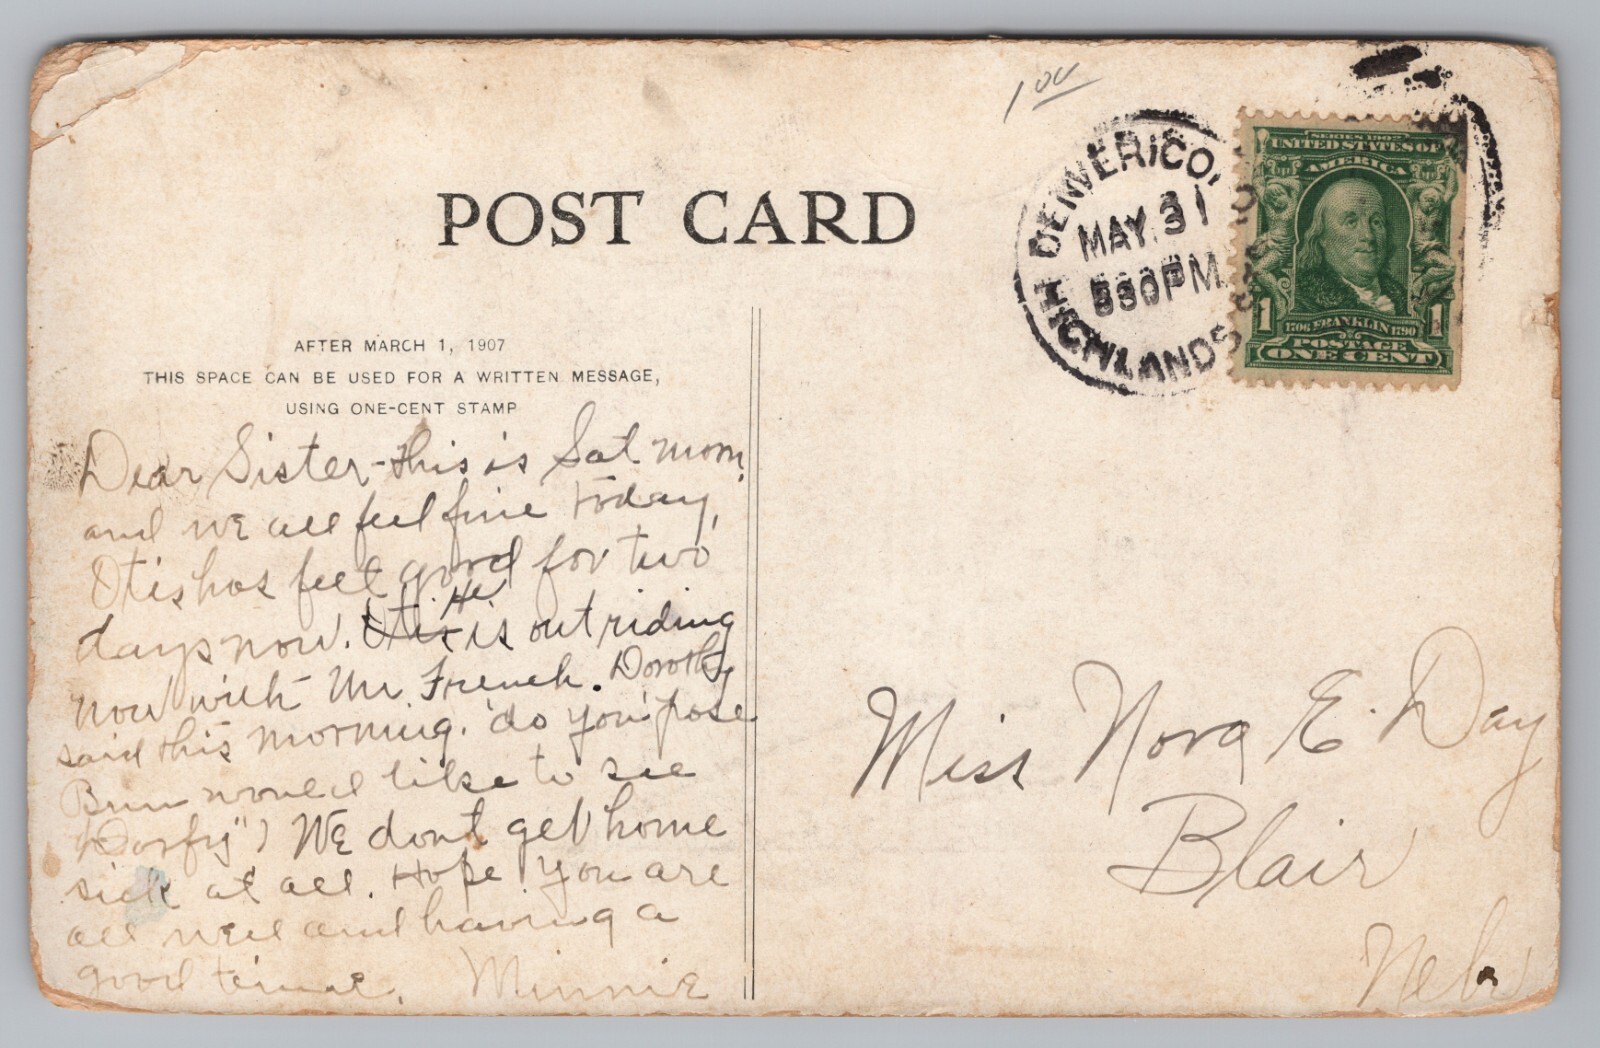 1 00
POST CARD
HIGHLANDS DENVER, COLO.
MAY 31
530 PM
SERIES 1902
UNITED STATES OF
AMERICA
1 1
1706 FRANKLIN 1790
POSTAGE
ONE CENT
AFTER MARCH 1, 1907
THIS SPACE CAN BE USED FOR A WRITTEN MESSAGE,
USING ONE-CENT STAMP
Dear Sister - this is Sat morn,
and we all feel fine today,
Otis has felt good for two
days now. Otis He is out riding
now with Mr French. Dorothy
said this morning. "do you 'pose
Bun would like to see
"Dorfy") We dont get home
sick at all. Hope you are
all well and having a
good time. Minnie
Miss Nora E. Day
Blair
Nebr